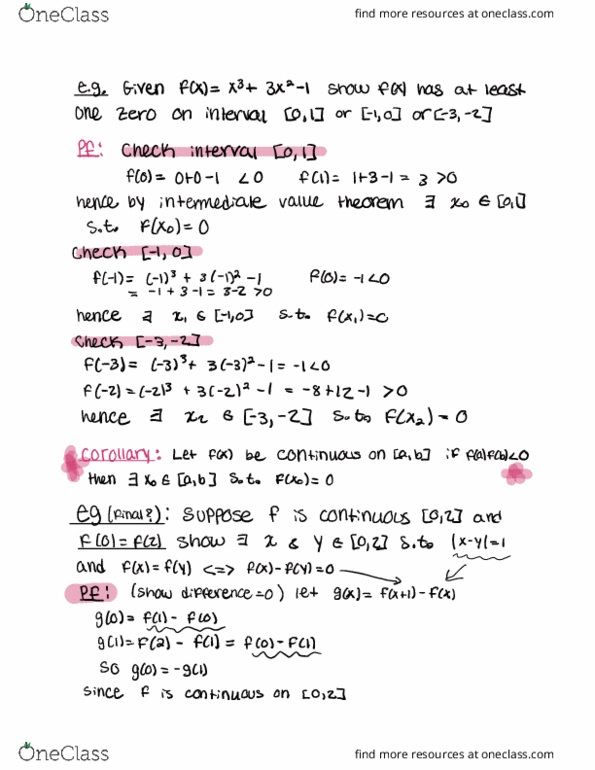 OneClass
find more resources at oneclass.com
e.g. Given f(x)= x³+ 3x²-1 show f(x) has at least
one zero on interval [0,1] or [-1,0] or [-3,-2]
Pf: Check interval [0,1]
f(0)= 0+0-1 <0 f(1)= 1+3-1 = 3 >0
hence by intermediate value theorem ∃ x₀ ∈ [0,1]
s.t. f(x₀)=0
Check [-1,0]
f(-1)= (-1)³ + 3(-1)²-1 f(0)= -1<0
= -1+3-1= 3-2 >0
hence ∃ x₁ ∈ [-1,0] s.t. f(x₁)=0
Check [-3,-2]
f(-3)= (-3)³+ 3(-3)²-1= -1<0
f(-2)=(-2)³ + 3(-2)²-1 = -8+12-1 >0
hence ∃ x₂ ∈ [-3,-2] s.t. f(x₂)=0
Corollary: Let f(x) be continuous on [a,b] if f(a)f(b)<0
then ∃ x₀∈[a,b] s.t. f(x₀)=0
eg (Final?): suppose f is continuous [0,2] and
f(0)=f(2) show ∃ x & y∈[0,2] s.t. |x-y|=1
and f(x)=f(y) <=> f(x)-f(y)=0
Pf: (show difference=0) let g(x)= f(x+1)-f(x)
g(0)= f(1)- f(0)
g(1)= f(2)- f(1)= f(0)-f(1)
so g(0)= -g(1)
since f is continuous on [0,2]
OneClass
find more resources at oneclass.com